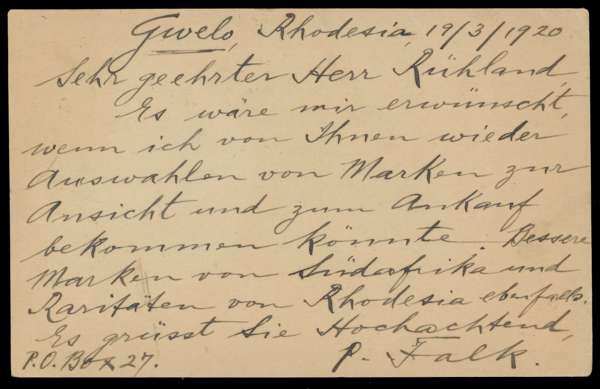 Gwelo, Rhodesia, 19/3/1920
Sehr geehrter Herr Rühland,
Es wäre mir erwünscht,
wenn ich von Ihnen wieder
Auswahlen von Marken zur
Ansicht und zum Ankauf
bekommen könnte. Bessere
Marken von Südafrika und
Raritäten von Rhodesia ebenfalls.
Es grüsst Sie Hochachtend,
P.O. Box 27. P. Falk.